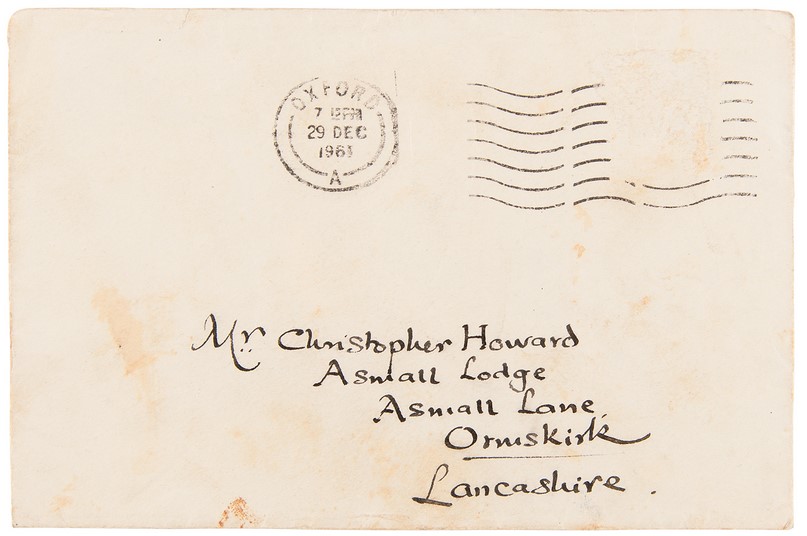 OXFORD
7 12 PM
29 DEC
1963
A
Mr. Christopher Howard
Asmall Lodge
Asmall Lane.
Ormskirk
Lancashire.